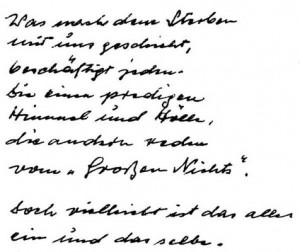 Was nach dem Sterben
mit uns geschieht,
beschäftigt jeden.
Die einen predigen
Himmel und Hölle,
die andern reden
vom „Großen Nichts“.
Doch vielleicht ist das alles
ein und das selbe.